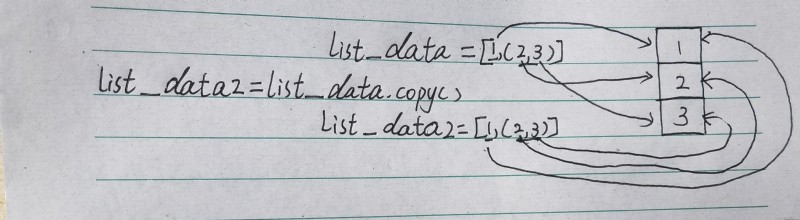 list_data = [1,(2,3)]
1
2
list_data2=list_data.copy()
3
list_data2=[1,(2,3)]